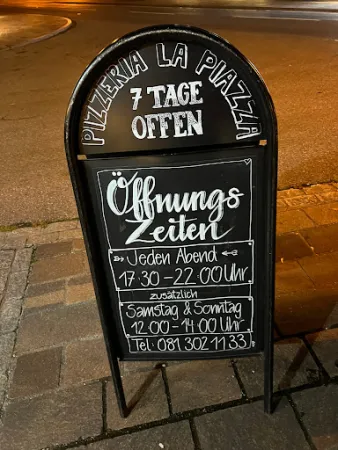 PIZZERIA LA PIAZZA
7 TAGE
OFFEN
Öffnungs
Zeiten
Jeden Abend
17:30-22:00 Uhr
zusätzlich
Samstag & Sonntag
12:00 - 14:00 Uhr
Tel: 081 302 11 33